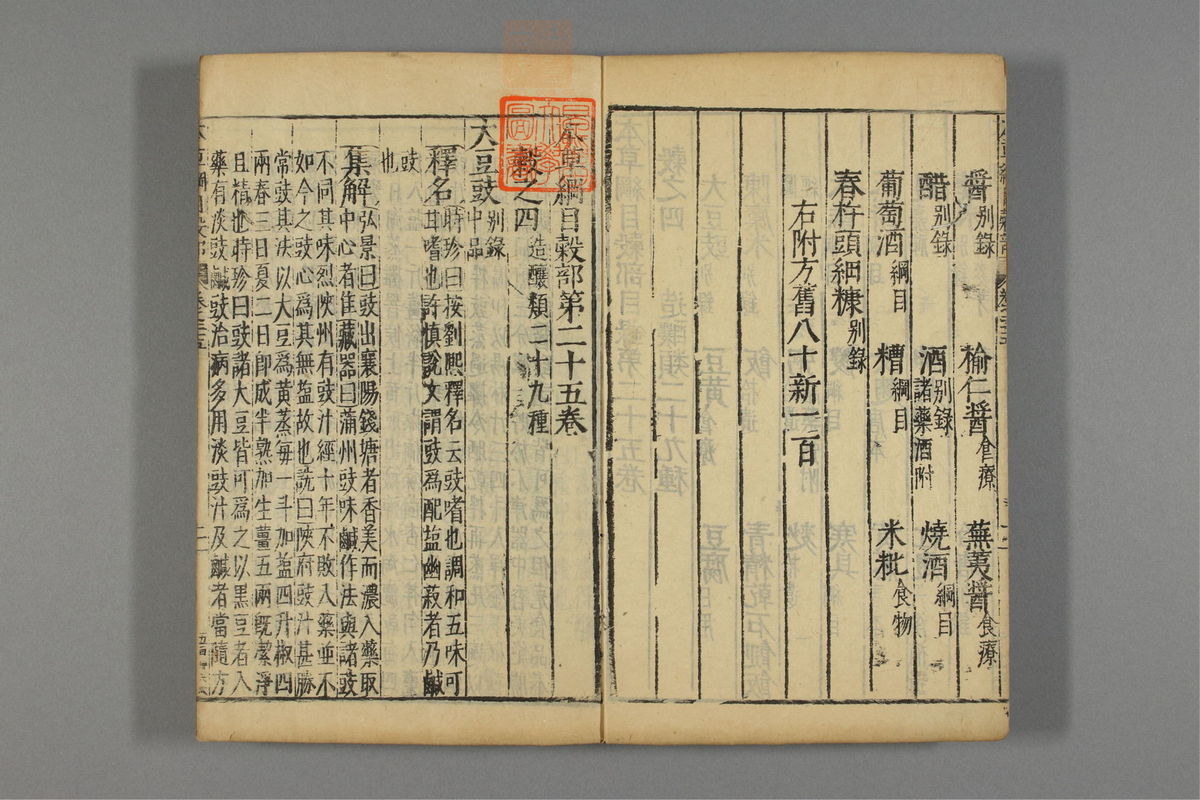 醬别錄 榆仁醬食療 蕪荑醬食療
醋别錄 酒别錄諸藥酒附 燒酒綱目
葡萄酒綱目 糟綱目 米粃食物
舂杵頭細糠别錄
右附方舊八十新一百
草綱目穀部第二十五卷
穀之四造釀類二十九種
大豆豉别錄中品
釋名時珍曰按劉熙釋名云豉嗜也調和五味可
甘嗜也許慎說文謂豉爲配鹽幽菽者乃鹹
豉
也
集解弘景曰豉出襄陽錢塘者香美而濃入藥取
中心者佳藏器曰蒲州豉味鹹作法與諸豉
不同其味烈陜州有豉汁經十年不敗入藥並不
如今之豉心爲其無鹽故也詵曰陜府豉汁甚勝
常豉其法以大豆爲黃蒸每一斗加鹽四升椒四
兩春三日夏二日卽成半熟加生薑五兩旣潔淨
且精也時珍曰豉諸大豆皆可爲之以黑豆者入
藥有淡豉鹹豉治病多用淡豉汁及鹹者當隨方